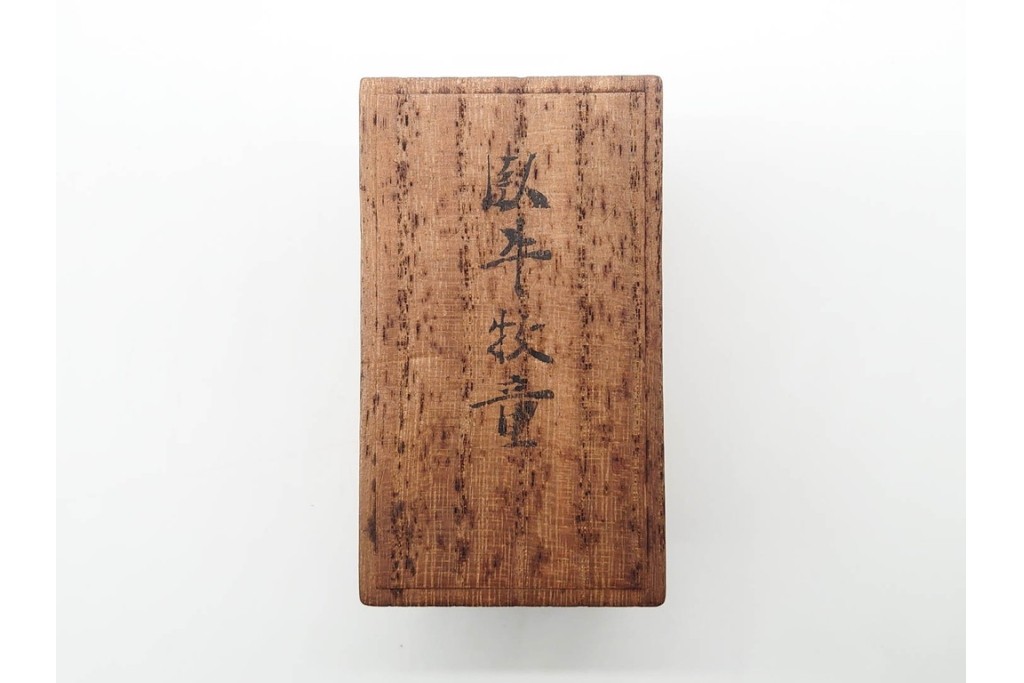 臥牛牧童